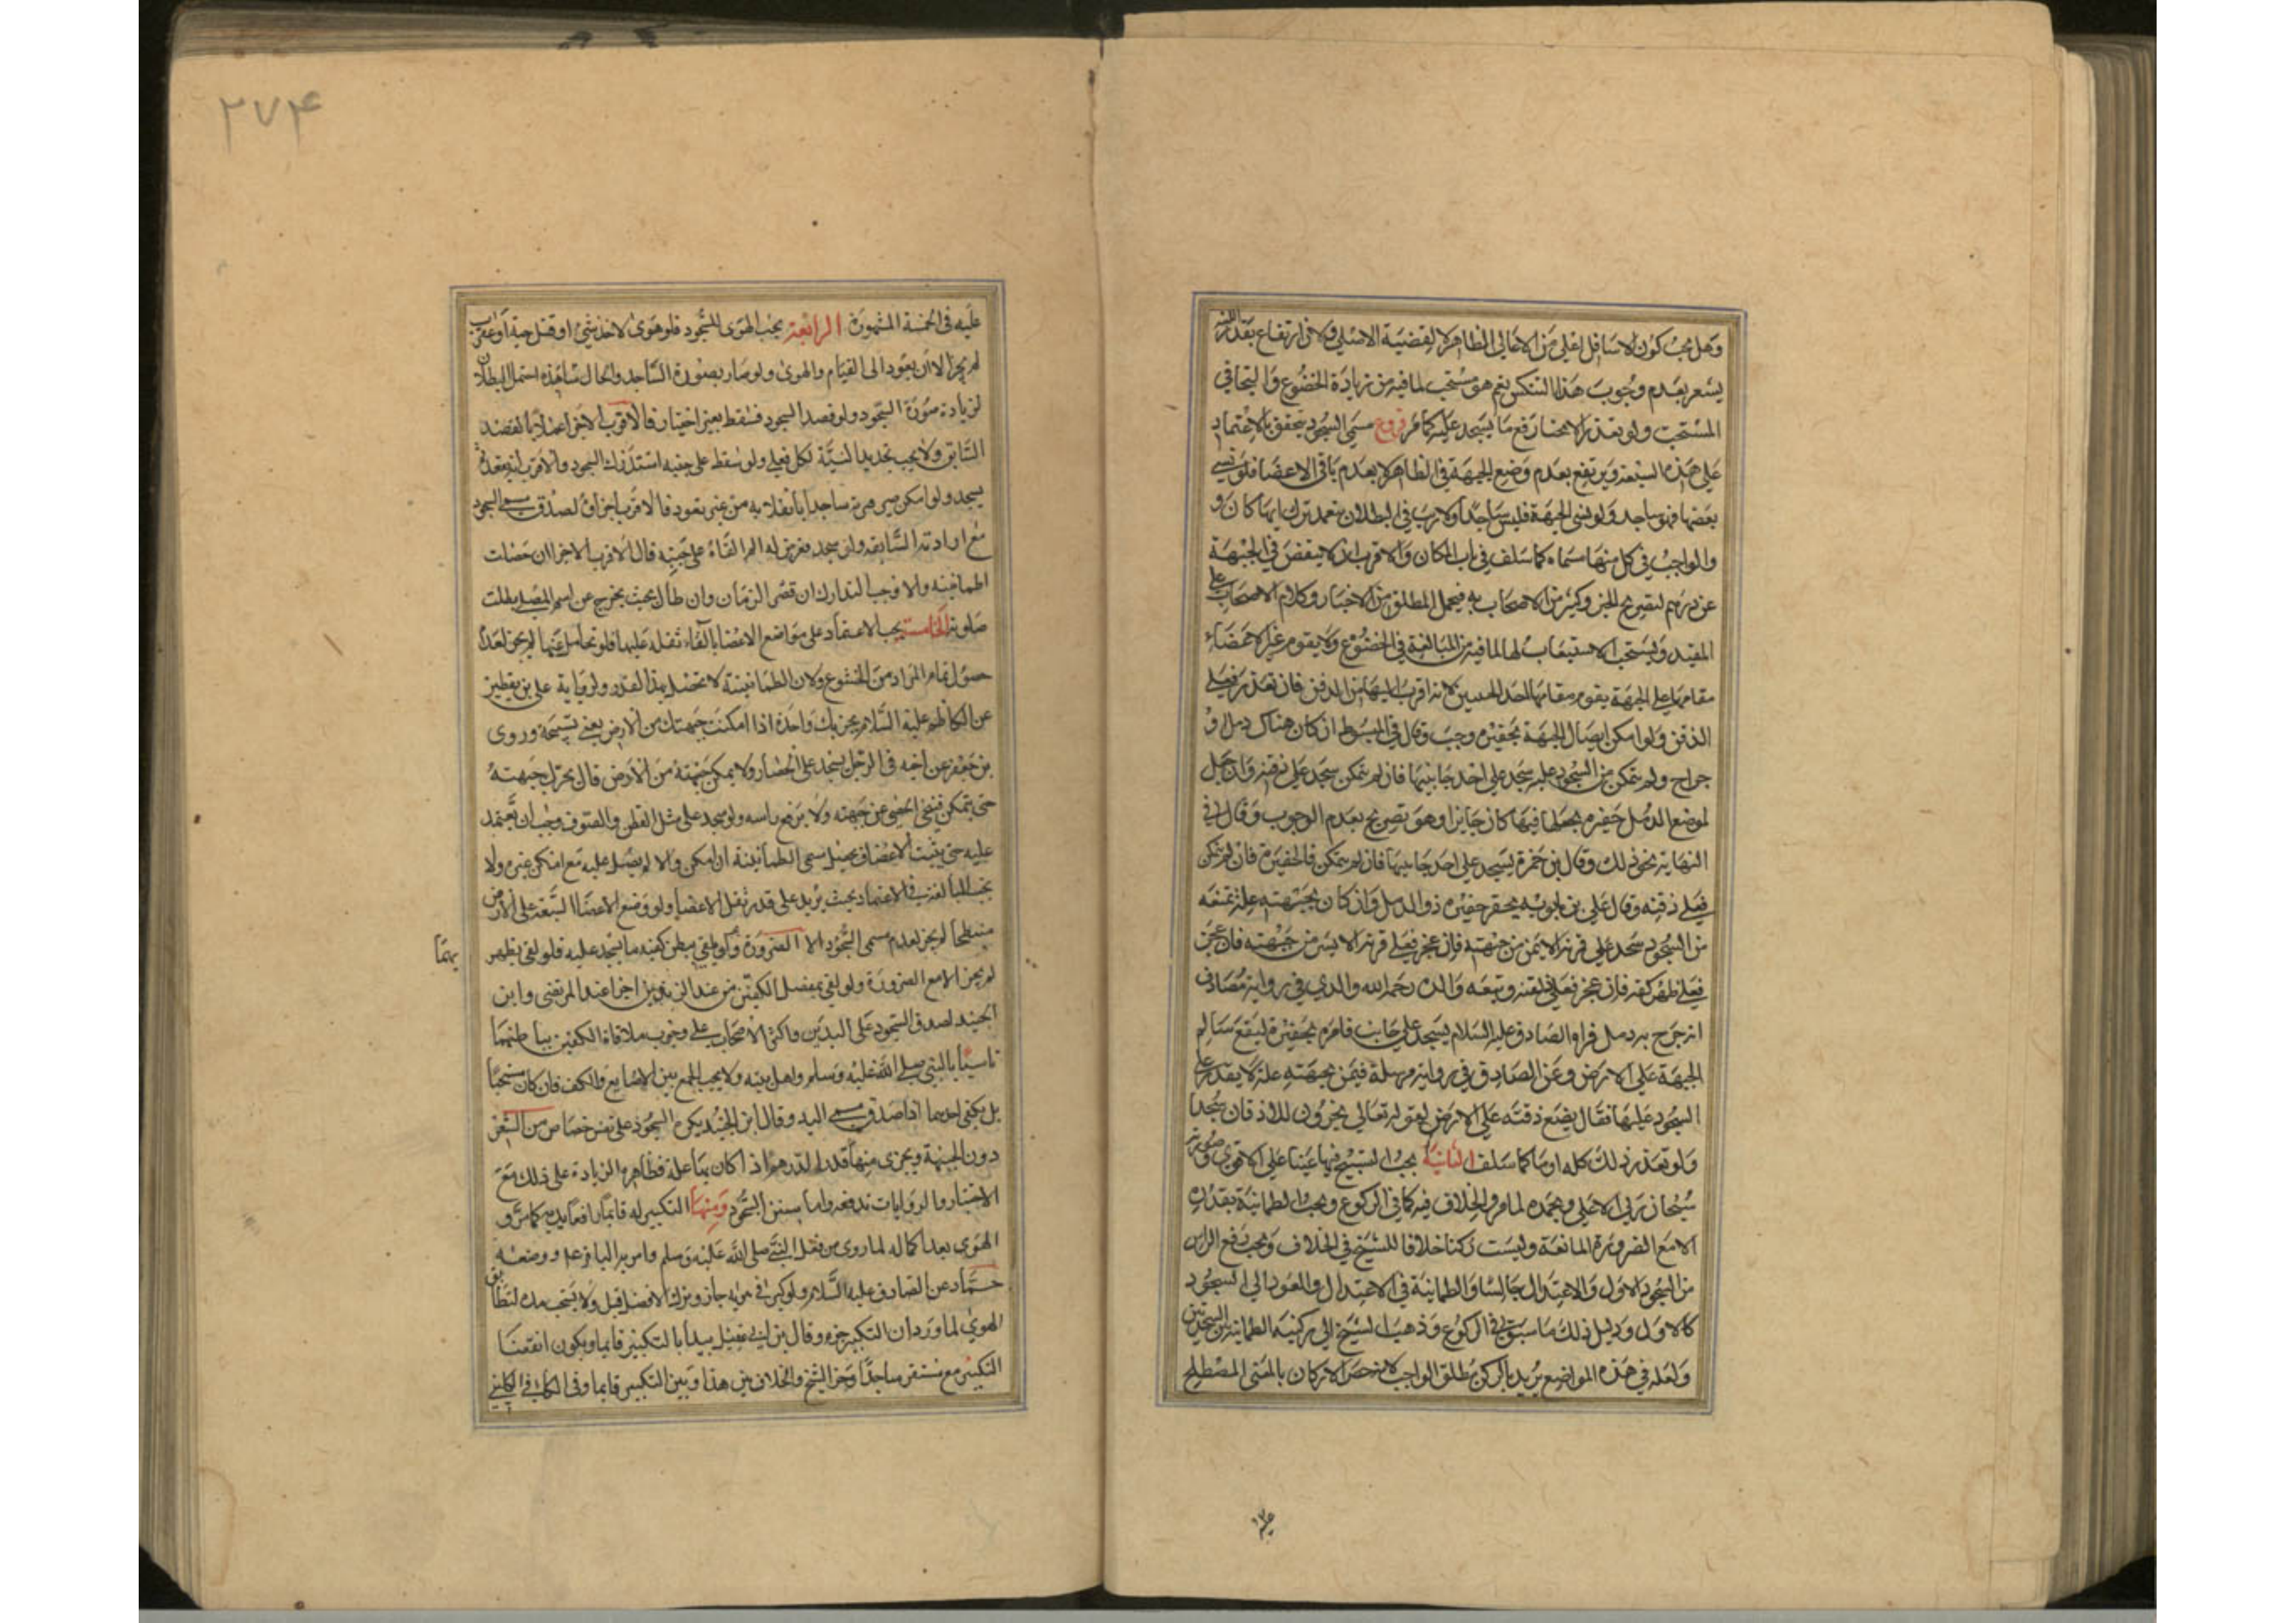 وهل يجب كون الاسافل اعلى من الاعالى الظاهر لا لقضية الاصل ولان ارتفاع بقدر اللبنة
يشعر بعدم وجوب هذا التنكس نعم هو مستحب لما فيه من زيادة الخضوع والتجافي
المستحب ولو تعذر الانحناء رفع ما يسجد عليه كما مر فروع مسمى السجود يتحقق بالاعتماد
على هذه السبعة ويرتفع بعدم وضع الجبهة في الظاهر لا بعدم باقي الاعضا فلو نسي
بعضها فهو ساجد ولو نسي الجبهة فليس ساجدا ولا ريب في البطلان بتعمد ترك ايها كان و
والواجب في كل منها مسماه كما سلف في باب المكان والاقرب ان لا ينقص في الجبهة
عن درهم لتصريح الخبر وكثير من الاصحاب به فيحمل المطلق من الاخبار وكلام الاصحاب على
المقيد ويستحب الاستيعاب لها لما فيه من المبالغة في الخضوع ولا يقوم غير الاعضاء
مقامها على الجبهة يقوم مقامها احد الجبينين لانه اقرب اليها من الذقن فان تعذر فعلى
الذقن ولو امكن ايصال الجبهة بحفيرة وجب وقال في المبسوط ان كان هناك دمل او
جراح ولم يتمكن من السجود عليه سجد على احد جانبيها فان لم يتمكن سجد على ذقنه وان جعل
لموضع الدمل حفيرة يجعلها فيها كان جايزا وهو تصريح بعدم الوجوب وقال في
النهاية نحو ذلك وقال بن حمزة يسجد على احد جانبيها فان لم يتمكن فالحفيرة فان لم يتمكن
فعلى ذقنه وقال علي بن بابويه يحفر حفيرة ذو الدمل وان كان بجبهته علة تمنعه
من السجود سجد على قرنه الايمن من جبهته فان عجز فعلى قرنه الايسر من جبهته فان عجز
فعلى ظهر كفه فان عجز فعلى ذقنه وتبعه والده رحمه الله والذي في رواية مصادف
انه خرج به دمل فراه الصادق عليه السلام يسجد على جانب فامره بحفيرة ليقع سالم
الجبهة على الارض وعن الصادق في رواية مرسلة فيمن بجبهته علة لا يقدر على
السجود عليها فقال يضع ذقنه على الارض لقوله تعالى يخرون للاذقان سجدا
ولو تعذر ذلك كله اوما كما سلف الثانية يجب التسبيح فيها عينا على الاقوى وصورته
سبحان ربي الاعلى وبحمده لما مر والخلاف فيه كما في الركوع ويجب الطمانية بقدره
الا مع الضرورة المانعة وليست ركنا خلافا للشيخ في الخلاف ويجب رفع الراس
من السجود الاول والاعتدال جالسا والطمانية في الاعتدال والعود الى السجود
كالاول ودليل ذلك ما سبق في الركوع وذهب الشيخ الى ركنية الطمانية بين السجدتين
ولعله في هذه المواضع يريد بالركن مطلق الواجب لانه حصر الاركان بالمعنى المصطلح
٢٧٤
عليه في الخمسة المشهورة الرابعة يجب الهوى للسجود فلو هوى لاخذ شئ او قتل حية او عقرب
لم يجز الا ان يعود الى القيام والهوى ولو صار بصورة الساجد والحال هذه احتمل البطلان
لزيادة صورة السجود ولو قصد السجود فسقط بغير اختيار فالاقرب الاجزا عملا بالقصد
السابق ولا يجب تجديد النية لكل فعل ولو سقط على جنبه استدرك السجود والاقرب انه يقعد ثم
يسجد ولو امكن صيرورته ساجدا بانقلابه من غير قعود فالاقرب اجزاؤه لصدق مسمى السجود
مع ارادته السابقة ولو سجد فعرض له الم القاه على جنبه قال الاقرب الاجزا ان حصلت
اطمانينه والا وجب التدارك ان قصر الزمان وان طال بحيث يخرج عن اسم المصلي بطلت
صلوته الخامسة يجب الاعتماد على مواضع الاعضا بالقاء ثقله عليها فلو تحامل عنها لم يجز لعدم
حصول تمام المراد من الخشوع ولان الطمانينة لا تحصل بهذا القدر ولرواية علي بن يقطين
عن الكاظم عليه السلام يجزيك واحدة اذا امكنت جبهتك من الارض يعني تسبيحة وروى
بن جعفر عن اخيه في الرجل يسجد على الحصا ولا يمكن جبهته من الارض قال يحرك جبهته
حتى يتمكن فينحي الحصى عن جبهته ولا يرفع راسه ولو سجد على مثل القطن والصوف وجب ان يعتمد
عليه حتى يثبت الاعضا فيحصل مسمى الطمانينة ان امكن والا لم يصل عليه مع امكن غيره ولا
يجب المبالغة في الاعتماد بحيث يزيد على قدر ثقل الاعضا ولو وضع الاعضا السبعة على الارض
منبطحا لم يجز لعدم مسمى السجود الا لضرورة ولو يلقي ببطن كفيه ما يسجد عليه فلو لقي بظهر
بهما
لم يجز الا مع الضرورة ولو لقي بمفصل الكفين من عند الزندين اجزا عند المرتضى وابن
الجنيد لصدق السجود على اليدين واكثر الاصحاب على وجوب ملاقاة الكفين بباطنهما
تاسيا بالنبي صلى الله عليه وسلم واهل بيته ولا يجب الجمع بين الاصابع والكف فان كان مستحبا
بل يكفي احدهما اذا صدق مسمى اليد وقال ابن الجنيد يكره السجود على نحو خصاص من الشعر
دون الجبهة ويجزي منها قدر الدرهم اذا كان بها علة فظاهره الزيادة على ذلك مع
الاختيار والروايات تدفعه واما سنن السجود ومنها التكبير له قايما رافعا يديه كما مر و
الهوى بعد اكماله لما روي من فعل النبي صلى الله عليه وسلم وامر به الباقر عم ووصفه
حماد عن الصادق عليه السلام ولو كبر في هويه جاز وترك الافضل قيل ولا يستحب مده ليطابق
الهوي لما ورد ان التكبير جزم وقال بن ابي عقيل يبدا بالتكبير قايما ويكون انقضا
التكبير مع مستقره ساجدا وخير الشيخ في الخلاف بين هذا وبين التكبير قايما وفي الكافي للكليني